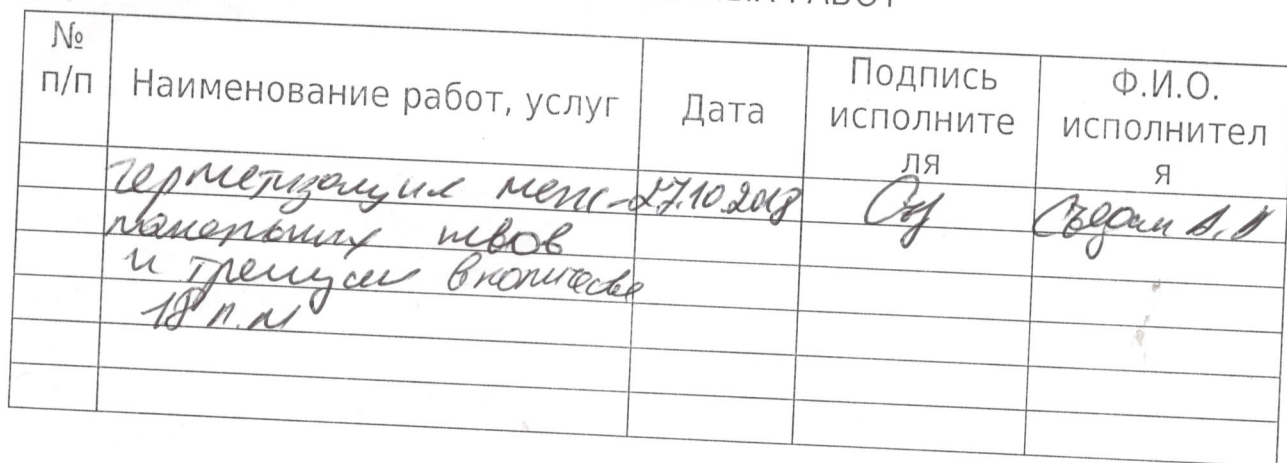 РАБОТ
№ п/п Наименование работ, услуг Дата Подпись исполните ля Ф.И.О. исполнител я
герметизация меж- 27.10.2018
панельных швов
и трещин в количестве
18 п.м